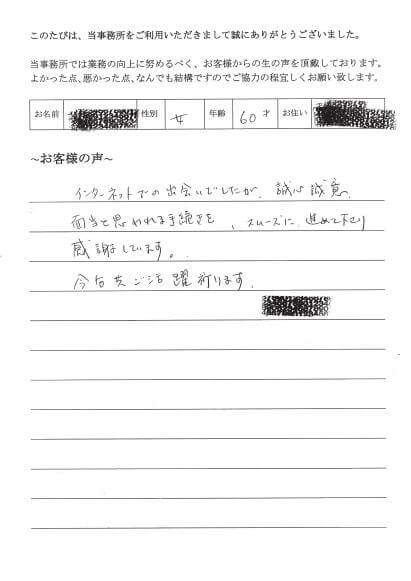 このたびは、当事務所をご利用いただきまして誠にありがとうございました。
当事務所では業務の向上に努めるべく、お客様からの生の声を頂戴しております。
よかった点、悪かった点、なんでも結構ですのでご協力の程宜しくお願い致します。
お名前 性別 女 年齢 60才 お住い
~お客様の声~
インターネットでの出会いでしたが、誠心誠意、
面当と思われる手続きを、スムーズに進めて下さり
感謝しています。
今后共ご活躍祈ります。